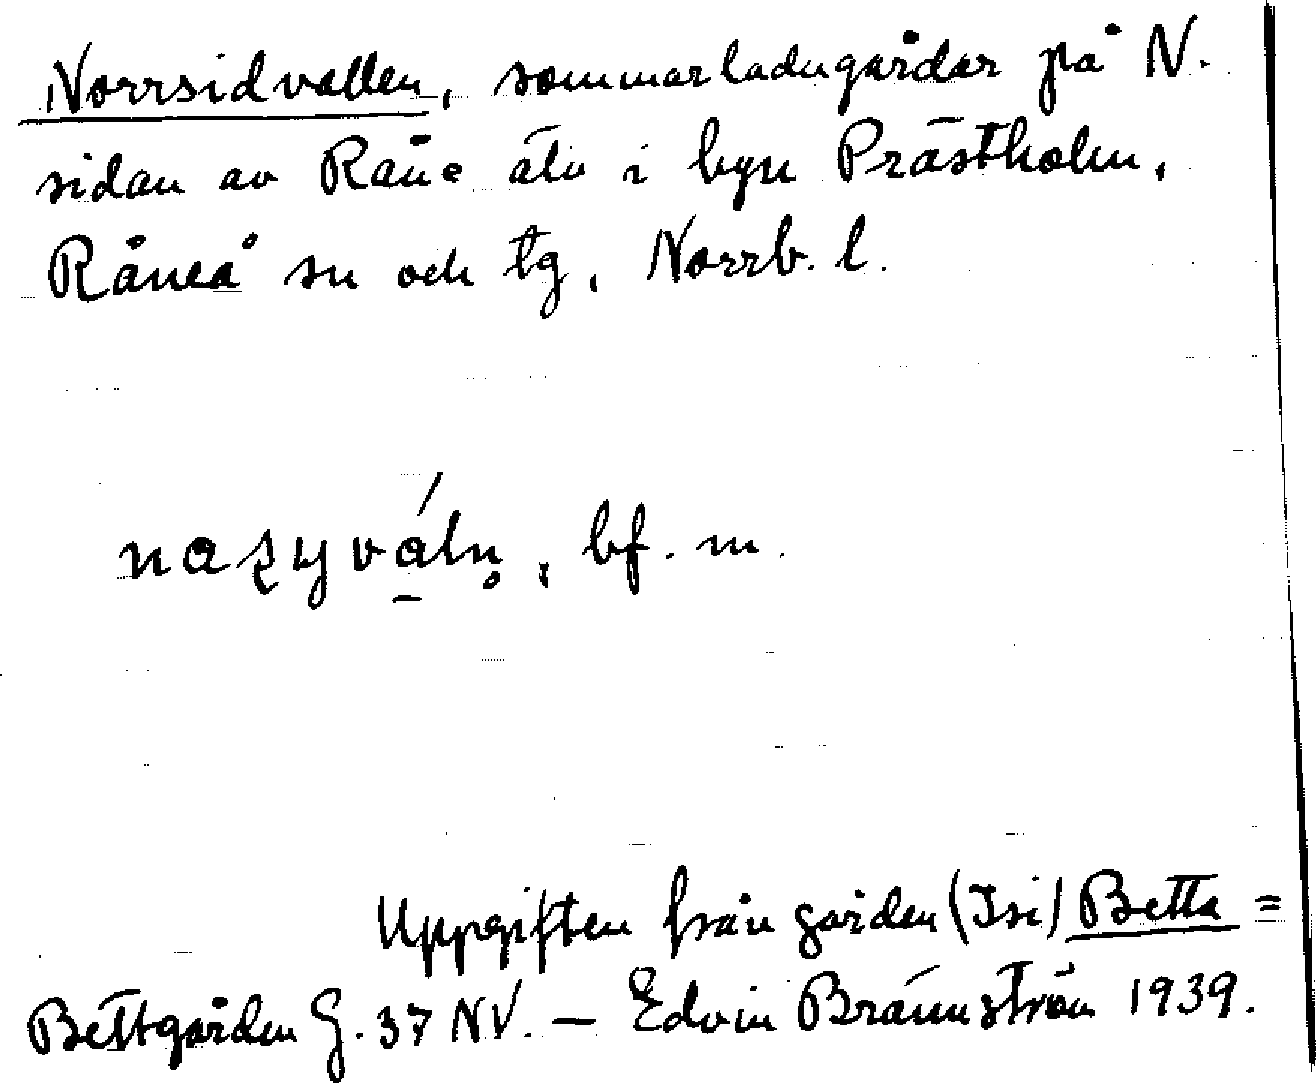 Norrsidvallen, sommarladugårdar på N.
sidan av Råne älv i byn Prästholm,
Råneå sn och tg, Norrb. l.
bf. m.
Uppgiften från gården (Isi) Betta =
Bettgården G. 37 NV. — Edvin Brännström 1939.